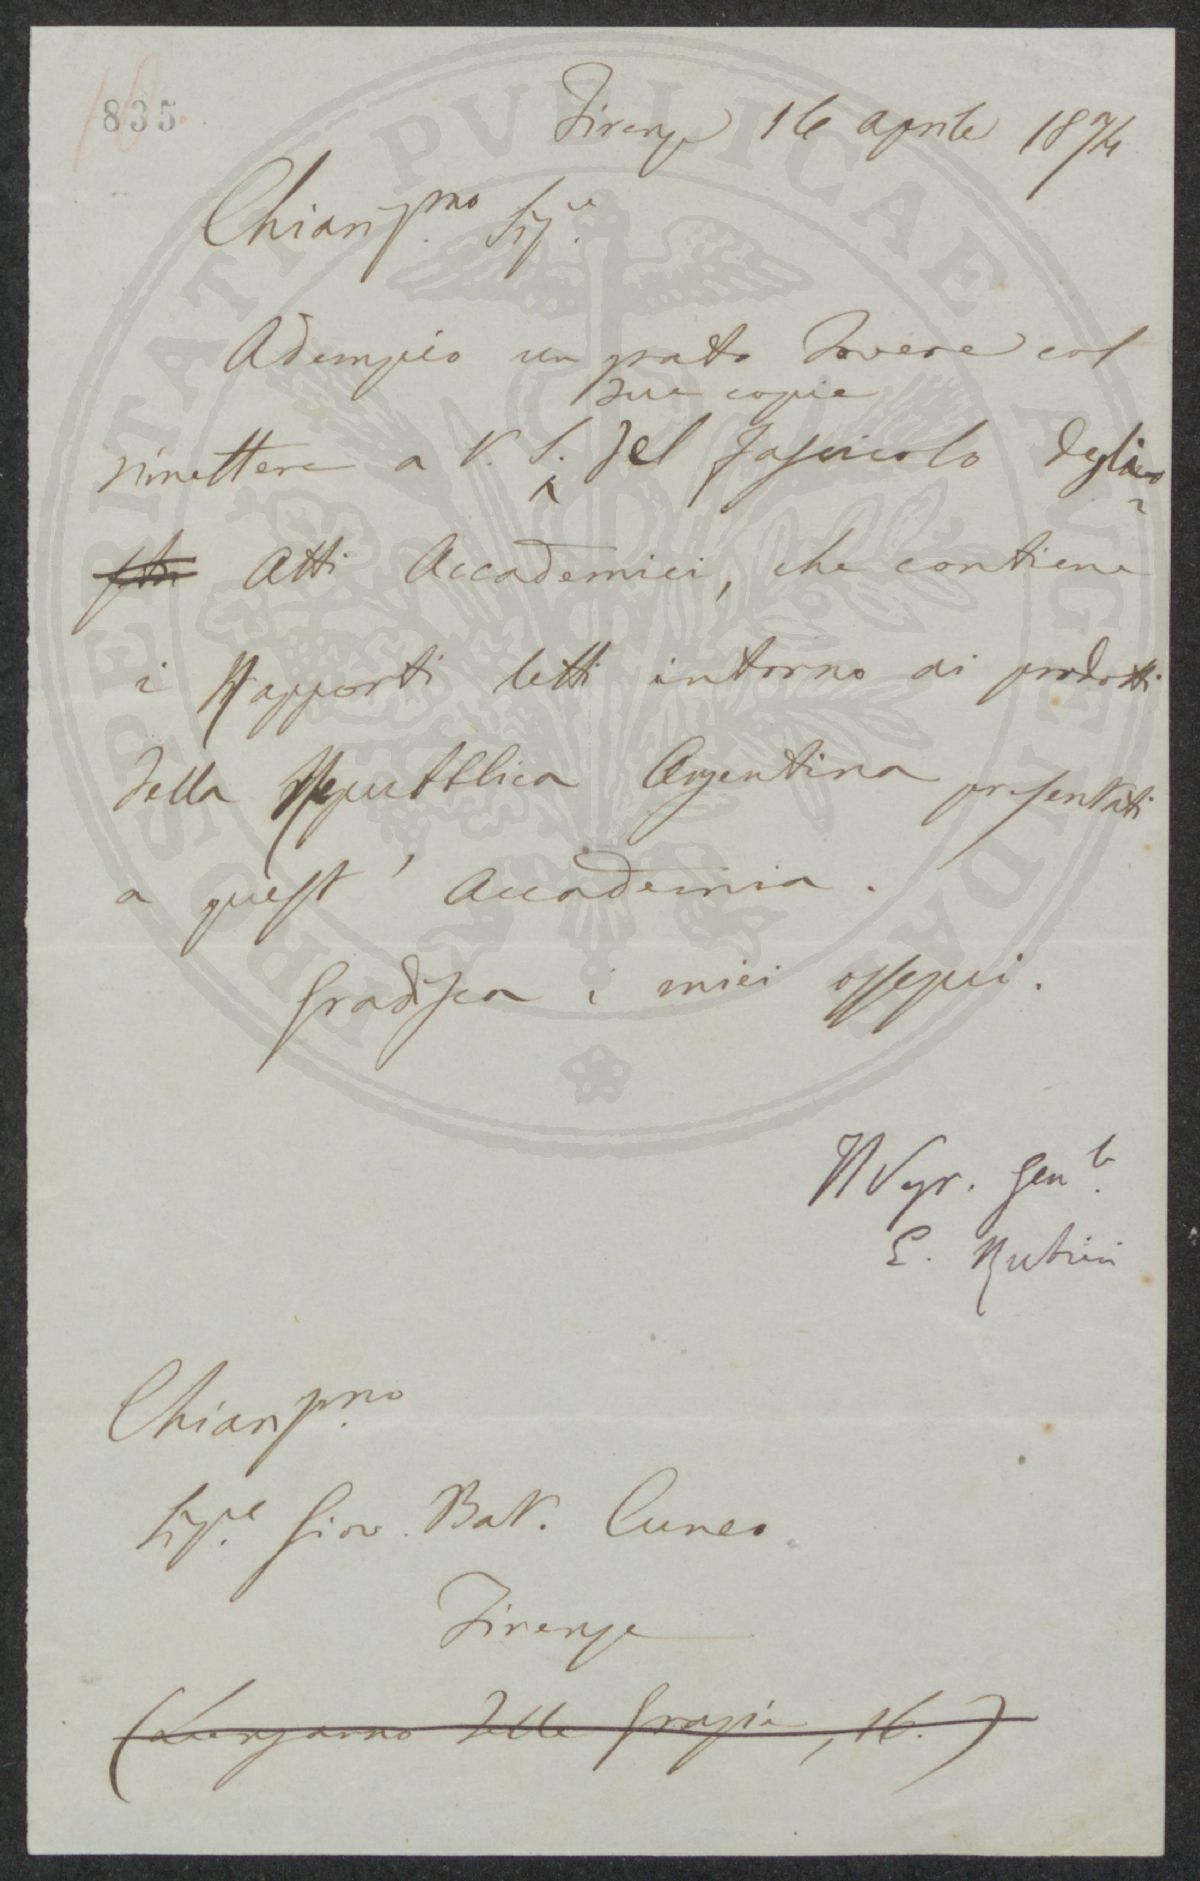 835
Firenze 16 aprile 1874
Chiariss.mo Sig.e
Adempio un grato dovere col
due copie
rimettere a V. S. del fascicolo degli
Atti Accademici, che contiene
i Rapporti letti intorno ai prodotti
della Repubblica Argentina presentati
a quest' Accademia.
Gradisca i miei ossequi.
Il Segr. Gen.le
E. Rubieri
Chiariss.mo
Sig.re Giov. Bat. Cuneo
Firenze
(Lungarno delle Grazie, 16.)
PROSPERITATI PVBLICAE AVGENDAE